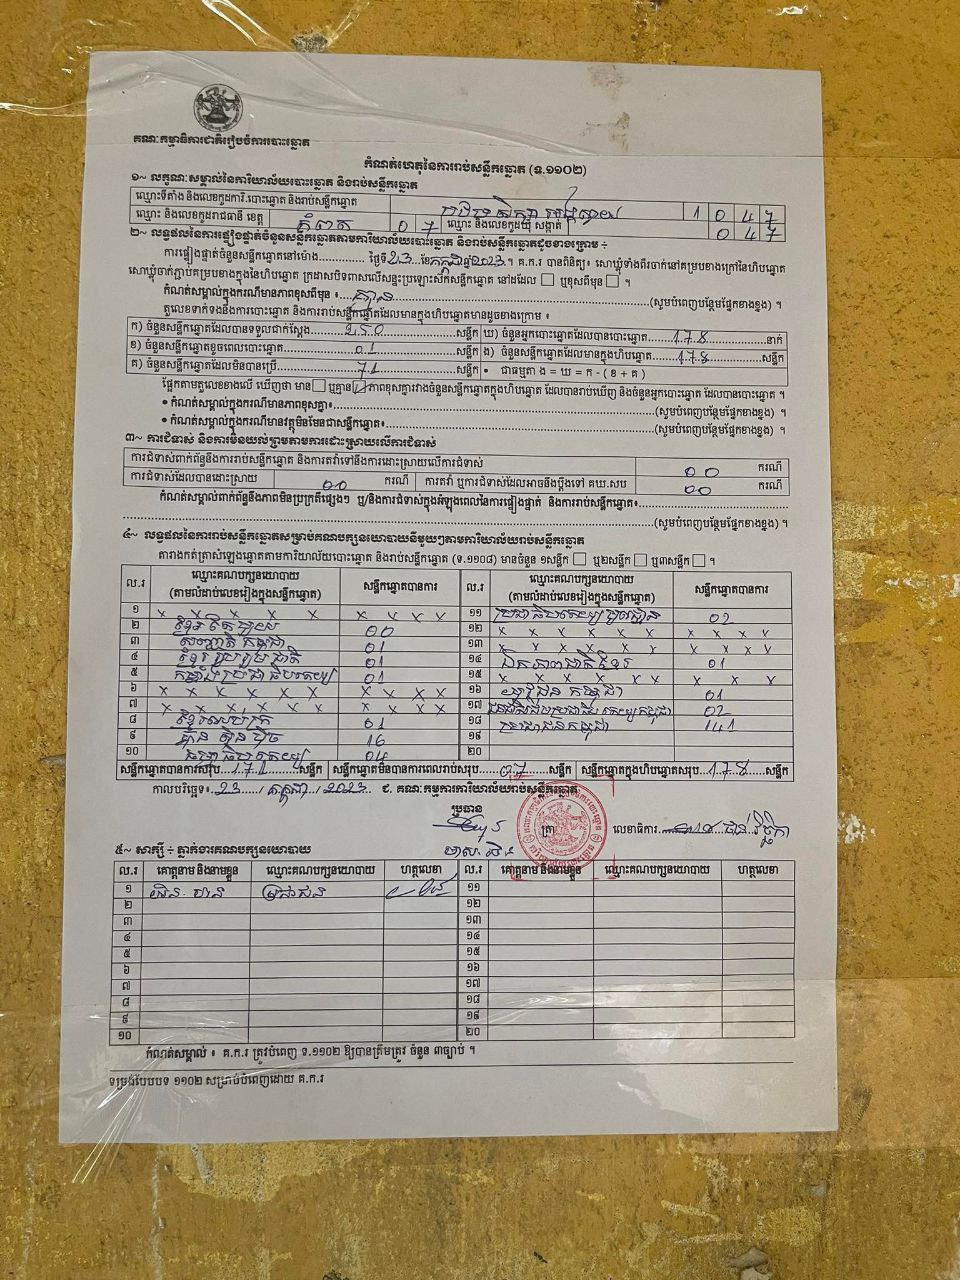 គណៈកម្មាធិការជាតិរៀបចំការបោះឆ្នោត
កំណត់ហេតុនៃការរាប់សន្លឹកឆ្នោត (ទ.១១០២)
១~ លក្ខណៈសម្គាល់នៃការិយាល័យបោះឆ្នោត និងរាប់សន្លឹកឆ្នោត
ឈ្មោះទីតាំង និងលេខកូដការិ.បោះឆ្នោត និងរាប់សន្លឹកឆ្នោត 1 0 4 7
ឈ្មោះ និងលេខកូដរាជធានី ខេត្ត កំពត 0 7 ឈ្មោះ និងលេខកូដឃុំ សង្កាត់ 0 4 7
២~ លទ្ធផលនៃការផ្ទៀងផ្ទាត់ចំនួនសន្លឹកឆ្នោតតាមការិយាល័យបោះឆ្នោត និងរាប់សន្លឹកឆ្នោតដូចខាងក្រោម ÷
ការផ្ទៀងផ្ទាត់ចំនួនសន្លឹកឆ្នោតនៅម៉ោង............. ថ្ងៃទី 23 ខែ កក្កដា ឆ្នាំ 2023 ។ គ.ក.រ បានពិនិត្យ៖ សោឃ្លុំទាំងពីរចាក់នៅគម្របខាងក្រៅនៃហិបឆ្នោត
សោឃ្លុំចាក់ភ្ជាប់គម្របខាងក្នុងនៃហិបឆ្នោត ក្រដាសបិទពាសលើសន្ទះប្រឡោះសឹកសន្លឹកឆ្នោត នៅដដែល ឬខុសពីមុន ។
កំណត់សម្គាល់ក្នុងករណីមានភាពខុសពីមុន ៖ គ្មាន (សូមបំពេញបន្ថែមផ្នែកខាងខ្នង) ។
តួលេខទាក់ទងនឹងការបោះឆ្នោត និងការរាប់សន្លឹកឆ្នោតដែលមានក្នុងហិបឆ្នោតមានដូចខាងក្រោម ៖
ក) ចំនួនសន្លឹកឆ្នោតដែលបានទទួលជាក់ស្តែង 250 សន្លឹក ឃ) ចំនួនអ្នកបោះឆ្នោតដែលបានបោះឆ្នោត 178 នាក់
ខ) ចំនួនសន្លឹកឆ្នោតខូចពេលបោះឆ្នោត 01 សន្លឹក ង) ចំនួនសន្លឹកឆ្នោតដែលមានក្នុងហិបឆ្នោត 178 សន្លឹក
គ) ចំនួនសន្លឹកឆ្នោតដែលមិនបានប្រើ 71 សន្លឹក • ជាធម្មតា ង = ឃ = ក - ( ខ + គ )
ផ្អែកតាមតួលេខខាងលើ ឃើញថា មាន ឬគ្មាន ភាពខុសគ្នារវាងចំនួនសន្លឹកឆ្នោតក្នុងហិបឆ្នោត ដែលបានរាប់ឃើញ និងចំនួនអ្នកបោះឆ្នោត ដែលបានបោះឆ្នោត ។
• កំណត់សម្គាល់ក្នុងករណីមានភាពខុសគ្នា៖ (សូមបំពេញបន្ថែមផ្នែកខាងខ្នង) ។
• កំណត់សម្គាល់ក្នុងករណីមានវត្ថុមិនមែនជាសន្លឹកឆ្នោត៖ (សូមបំពេញបន្ថែមផ្នែកខាងខ្នង) ។
៣~ ការជំទាស់ និងការមិនយល់ព្រមតាមការដោះស្រាយលើការជំទាស់
ការជំទាស់ពាក់ព័ន្ធនឹងការរាប់សន្លឹកឆ្នោត និងការតវ៉ាទៅនឹងការដោះស្រាយលើការជំទាស់ 00 ករណី
ការជំទាស់ដែលបានដោះស្រាយ 00 ករណី ការតវ៉ា ឬការជំទាស់ដែលអាចនឹងប្តឹងទៅ គឃ.សប 00 ករណី
កំណត់សម្គាល់ពាក់ព័ន្ធនឹងភាពមិនប្រក្រតីផ្សេងៗ ឬ/និងការជំទាស់ក្នុងអំឡុងពេលនៃការផ្ទៀងផ្ទាត់ និងការរាប់សន្លឹកឆ្នោត៖
(សូមបំពេញបន្ថែមផ្នែកខាងខ្នង) ។
៤~ លទ្ធផលនៃការរាប់សន្លឹកឆ្នោតសម្រាប់គណបក្សនយោបាយនីមួយៗតាមការិយាល័យរាប់សន្លឹកឆ្នោត
តារាងកត់ត្រាសំឡេងឆ្នោតតាមការិយាល័យបោះឆ្នោត និងរាប់សន្លឹកឆ្នោត (ទ.១១០៨) មានចំនួន ១សន្លឹក ឬ២សន្លឹក ឬ៣សន្លឹក ។
ល.រ ឈ្មោះគណបក្សនយោបាយ (តាមលំដាប់លេខរៀងក្នុងសន្លឹកឆ្នោត) សន្លឹកឆ្នោតបានការ ល.រ ឈ្មោះគណបក្សនយោបាយ (តាមលំដាប់លេខរៀងក្នុងសន្លឹកឆ្នោត) សន្លឹកឆ្នោតបានការ
១ x x x x x x x x x ១១ ប្រជាធិបតេយ្យមូលដ្ឋាន 02
២ ខ្មែរ 00 ១២ x x x x x x x x x x
៣ សញ្ជាតិកម្ពុជា 01 ១៣ x x x x x x x x x x
៤ ខ្មែររួបរួមជាតិ 01 ១៤ ឯកភាពជាតិខ្មែរ 01
៥ កម្លាំងប្រជាធិបតេយ្យ 01 ១៥ x x x x x x x x x
៦ x x x x x x x x x x ១៦ យុវជនកម្ពុជា 01
៧ x x x x x x x x x x ១៧ ជនជាតិដើមប្រជាធិបតេយ្យកម្ពុជា 02
៨ ខ្មែរឈប់ក្រ 01 ១៨ ប្រជាជនកម្ពុជា 141
៩ ហ្វ៊ុនស៊ិនប៉ិច 16 ១៩
១០ ធម្មាធិបតេយ្យ 04 ២០
សន្លឹកឆ្នោតបានការសរុប 171 សន្លឹក សន្លឹកឆ្នោតមិនបានការពេលរាប់សរុប 07 សន្លឹក សន្លឹកឆ្នោតក្នុងហិបឆ្នោតសរុប 178 សន្លឹក
កាលបរិច្ឆេទ៖ 23 / កក្កដា / 2023 ជ. គណៈកម្មការការិយាល័យរាប់សន្លឹកឆ្នោត
ប្រធាន
ត្រា លេខាធិការ
៥~ សាក្សី ÷ ភ្នាក់ងារគណបក្សនយោបាយ
ល.រ គោត្តនាម និងនាមខ្លួន ឈ្មោះគណបក្សនយោបាយ ហត្ថលេខា ល.រ គោត្តនាម និងនាមខ្លួន ឈ្មោះគណបក្សនយោបាយ ហត្ថលេខា
១ ប្រជាជន ១១
២ ១២
៣ ១៣
៤ ១៤
៥ ១៥
៦ ១៦
៧ ១៧
៨ ១៨
៩ ១៩
១០ ២០
កំណត់សម្គាល់ ៖ គ.ក.រ ត្រូវបំពេញ ទ.១១០២ ឱ្យបានត្រឹមត្រូវ ចំនួន ៣ច្បាប់ ។
ទម្រង់បែបបទ ១១០២ សម្រាប់បំពេញដោយ គ.ក.រ